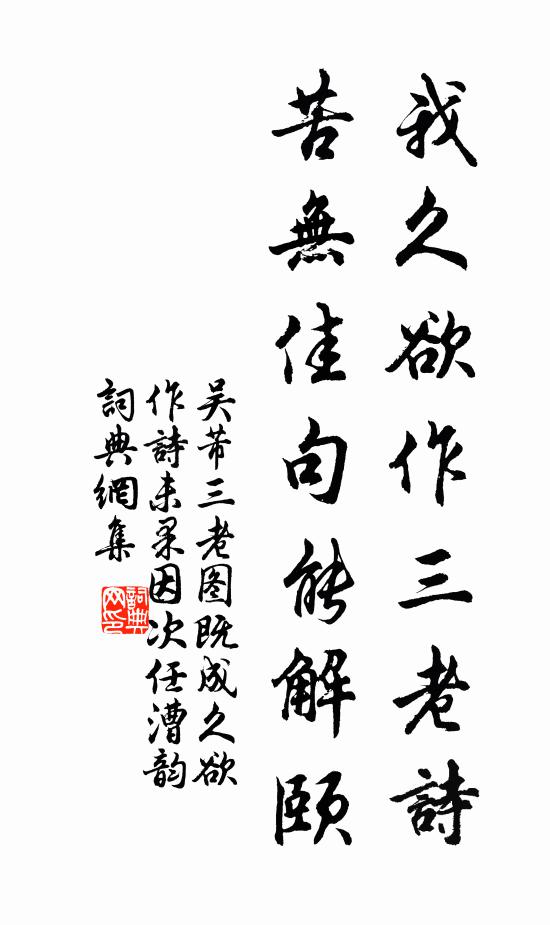 我久欲作三老詩
苦無佳句能解頤
吴芾三老图既成久欲
作詩未果因次任漕韵
詞典網集
詞典网印